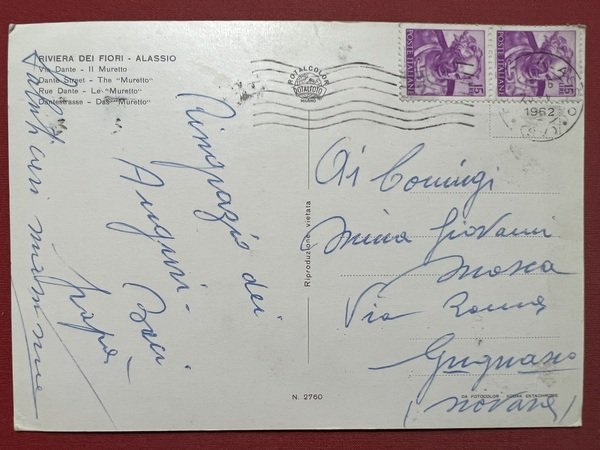 RIVIERA DEI FIORI - ALASSIO
Via Dante - Il Muretto
Dante Street - The "Muretto"
Rue Dante - Le "Muretto"
Dantestrasse - Das "Muretto"
ROTALCOLOR
ROTALFOTO
MILANO
POSTE ITALIANE
15
POSTE ITALIANE
15
1962
Ringrazio dei
Auguri -
Baci
papà
cari mamma
Riproduzione vietata
Ai Coniugi
Mina Giovanni
Mosca
Via Roma
Grignasco
(Novara)
N. 2760
DA FOTOCOLOR KODAK EKTACHROME